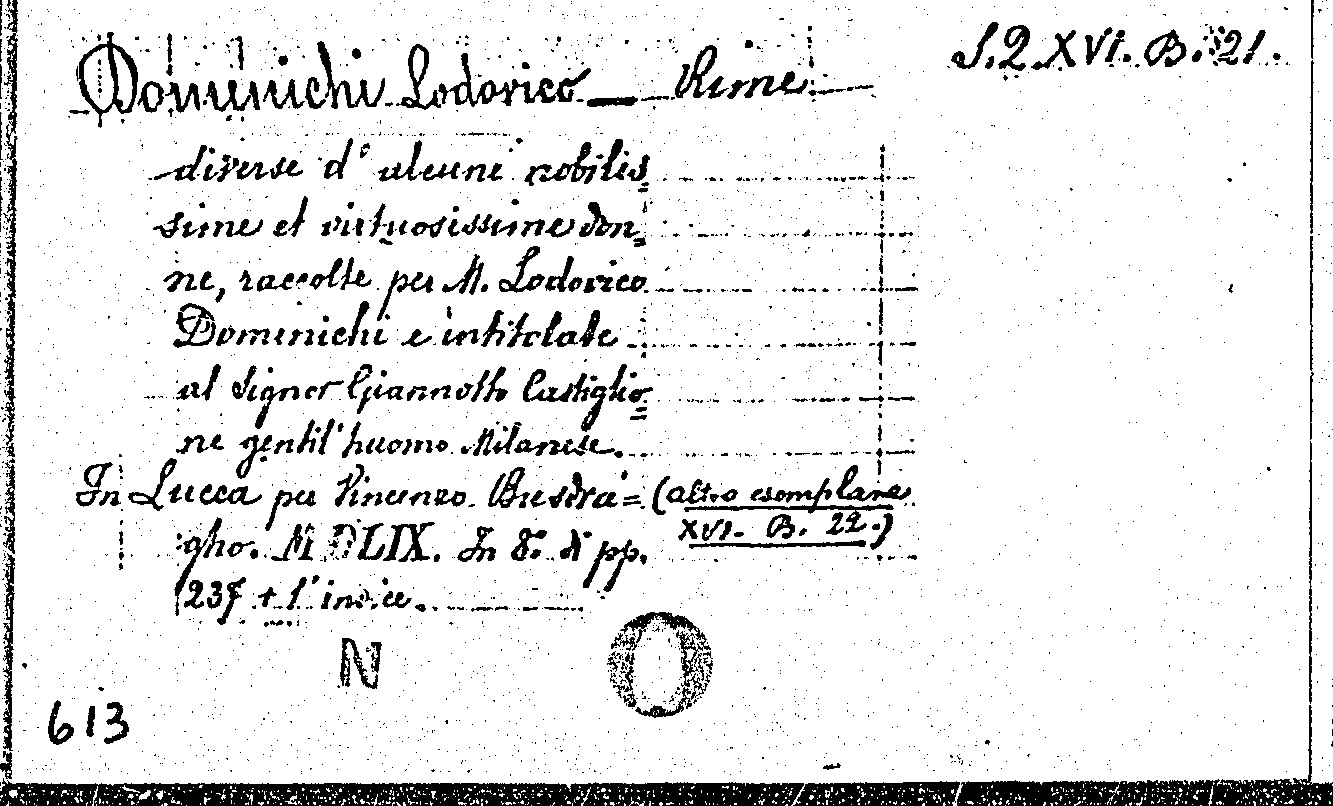 Domenichi Lodovico — Rime S.Q.XVI.B.21.
diverse d'alcune nobilis=
sime et virtuosissime don=
ne, raccolte per M. Lodovico
Domenichi e intitolate
al Signor Giannotto Castiglio=
ne gentil'huomo Milanese.
In Lucca per Vincenzo Busdra= (altro esemplare
gho. MDLIX. In 8.° di pp. XVI. B. 22.)
237 + l'indice.
N O
613